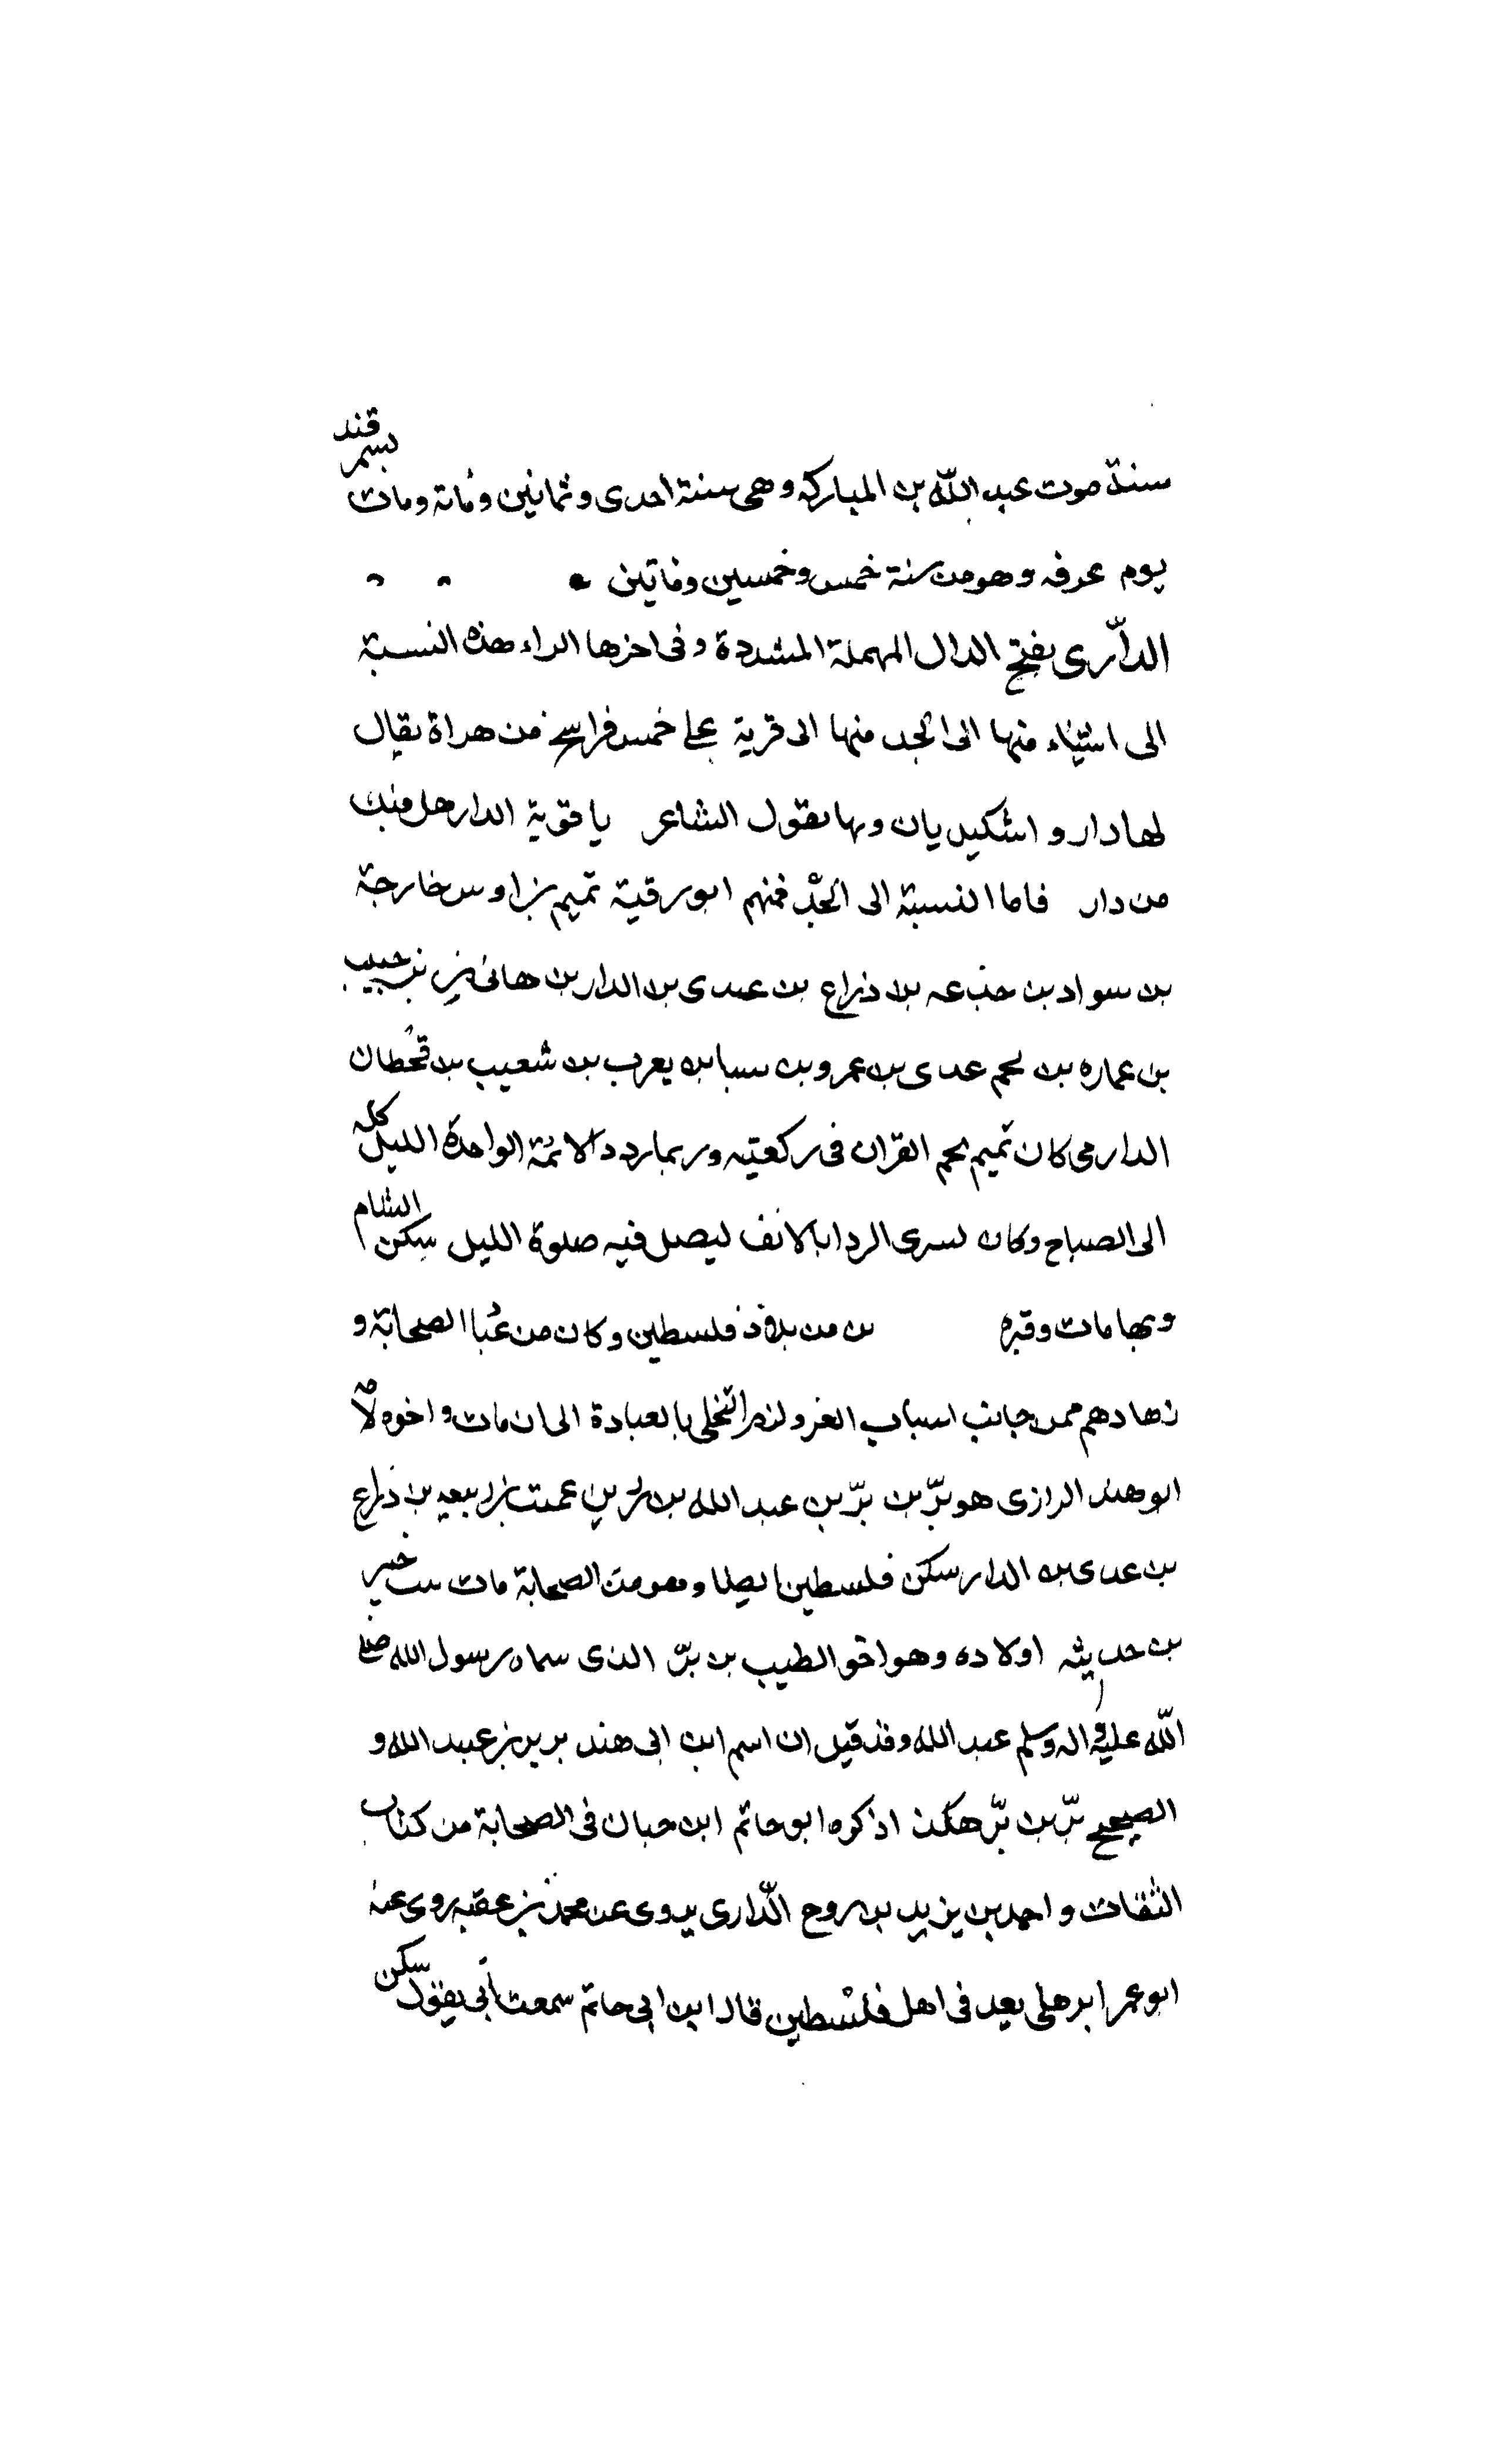 سنة موت عبد الله بن المبارك وهى سنة احدى وثمانين ومائة ومات بسمرقند
يوم عرفه وهو من سنة خمس وخمسين ومأتين
الدّارى بفتح الدال المهملة المشددة وفى اخرها الراء هذه النسبة
الى اشياء منها الى الجد منها الى قرية على خمس فراسخ من هراة يقال
لها دار واشكيديان وبها يقول الشاعر يا قرية الدار هل فيك
من دار فاما النسبة الى الجد فمنهم ابو رقية تميم بن اوس خارجة
بن سواد بن جذعه بن ذراع بن عبدى بن الدار بن هانى بن حبيب
بن عماره بن لحم عدى بن عمرو بن سبا بن يعرب بن شعيب بن قحطان
الدارمى كان تميم يحم القران فى ركعتيه وربما ردد الائمة الواحدة الليل كله
الى الصباح وكان يسرى الردا بالانف ليصل فيه صلوة الليل سكن الشام
وبها مات وقبره من بلاد فلسطين وكان من عُبا الصحابة و
زهادهم ممن جانب اسباب الغرو لزم التخلى بالعبادة الى ان مات واخوه لامه
ابو هند الرازى هو برّ بن برّ بن عبد الله بن بن عميت بن ربيعه بن ذراع
بن عدى بن الدار سكن فلسطين ايضا وهو من الصحابة مات ببيت خبير
بن حديثه اولاده وهو اخو الطيب بن برّ الذى سماه رسول الله صلى
الله عليه واله وسلم عبد الله وقد قيل ان اسم ابن ابى هند برير بن عبيد الله و
الصحيح برّ بن برّ هكذا ذكره ابو حاتم ابن حبان فى الصحابة من كتاب
الثقات واحمد بن يزيد بن روح الدّارى يروى عن محمد بن عقبه روى عنه
ابو عمر ابرهلى يعد فى اهل فلسطين قال ابن ابى حاتم سمعت أبى يقول سكن